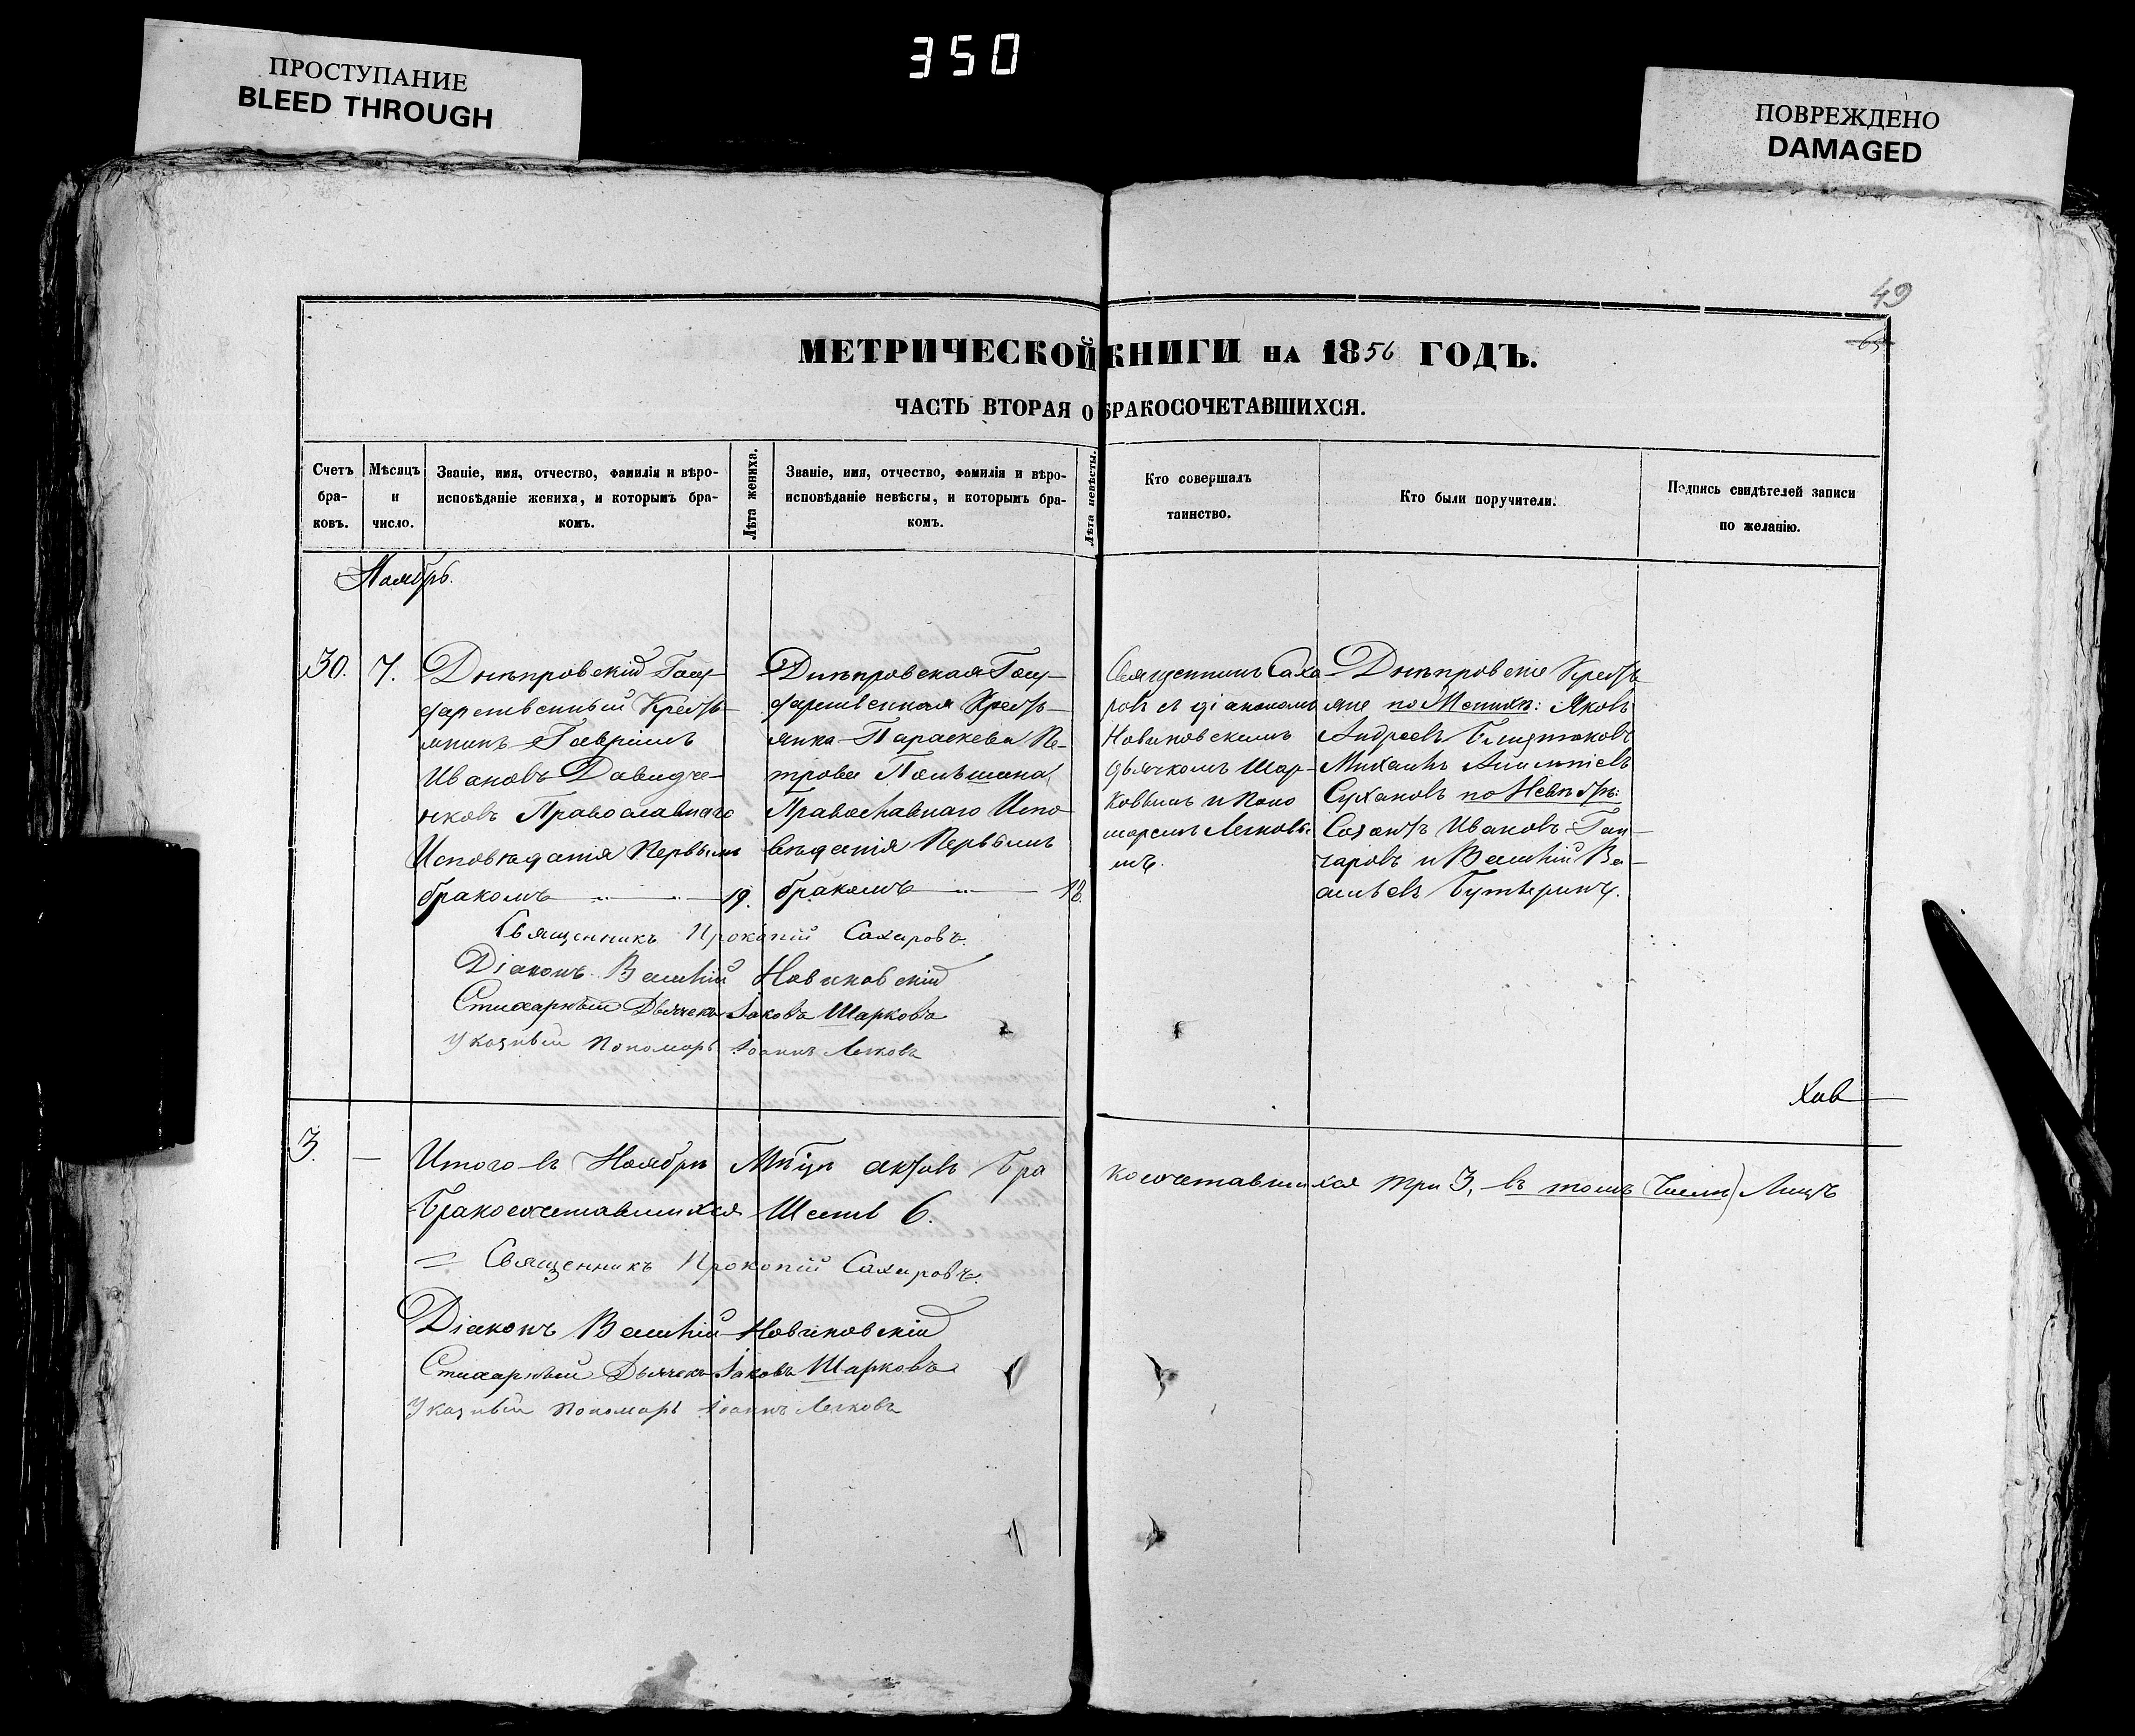 350
ПРОСТУПАНИЕ
BLEED THROUGH
ПОВРЕЖДЕНО
DAMAGED
49
МЕТРИЧЕСКОЙ КНИГИ НА 1856 ГОДЪ.
ЧАСТЬ ВТОРАЯ О БРАКОСОЧЕТАВШИХСЯ.
Счетъ
бра-
ковъ.
Мѣсяцъ
и
число.
Званіе, имя, отчество, фамилія и вѣро-
исповѣданіе жениха, и которымъ бра-
комъ.
Лѣта жениха.
Званіе, имя, отчество, фамилія и вѣро-
исповѣданіе невѣсты, и которымъ бра-
комъ.
Лѣта невѣсты.
Кто совершалъ
таинство.
Кто были поручители.
Подпись свидѣтелей записи
по желанію.
Ноябрь.
30.
7.
Днѣпровскій Госу-
дарственный Кресть-
янинъ Гавріилъ
Ивановъ Давиде-
нковъ Православнаго
Исповѣданія Первымъ
бракомъ
19.
Днѣпровская Госу-
дарственная Кресть-
янка Параскева Пе-
трова
Православнаго Испо-
вѣданія Первымъ
бракомъ
18.
Священникъ Саха-
ровъ съ діакономъ
Новиковскимъ
дьячкомъ Шар-
ковымъ и Поно
маремъ Легковы
мъ.
Днѣпровскіе Кресть
яне по Женихѣ: Яковъ
Андреевъ
Михаилъ
Сухановъ по Невѣстѣ:
Созонтъ Ивановъ Ган-
чаровъ и Василій Ва-
сильевъ Бутыринъ.
Священникъ Прокопій Сахаровъ.
Діаконъ Василій Новиковскій
Стихарный Дьячекъ Іаковъ Шарковъ
Указный Пономарь Іоаннъ Легковъ
3.
Итого въ Ноябрѣ Мѣцѣ актовъ бра
косочетавшихся три 3, въ томъ Числѣ) Лицъ
Бракосочетавшихся Шесть 6.
Священникъ Прокопій Сахаровъ.
Діаконъ Василій Новиковскій
Стихарный Дьячекъ Іаковъ Шарковъ
Указный Пономарь Іоаннъ Легковъ